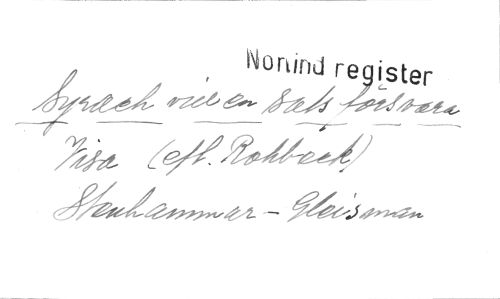 Nonind register
Syrach vill en sats försvara
Visa (eft. Rohbock)
Stenhammar – Gleisman